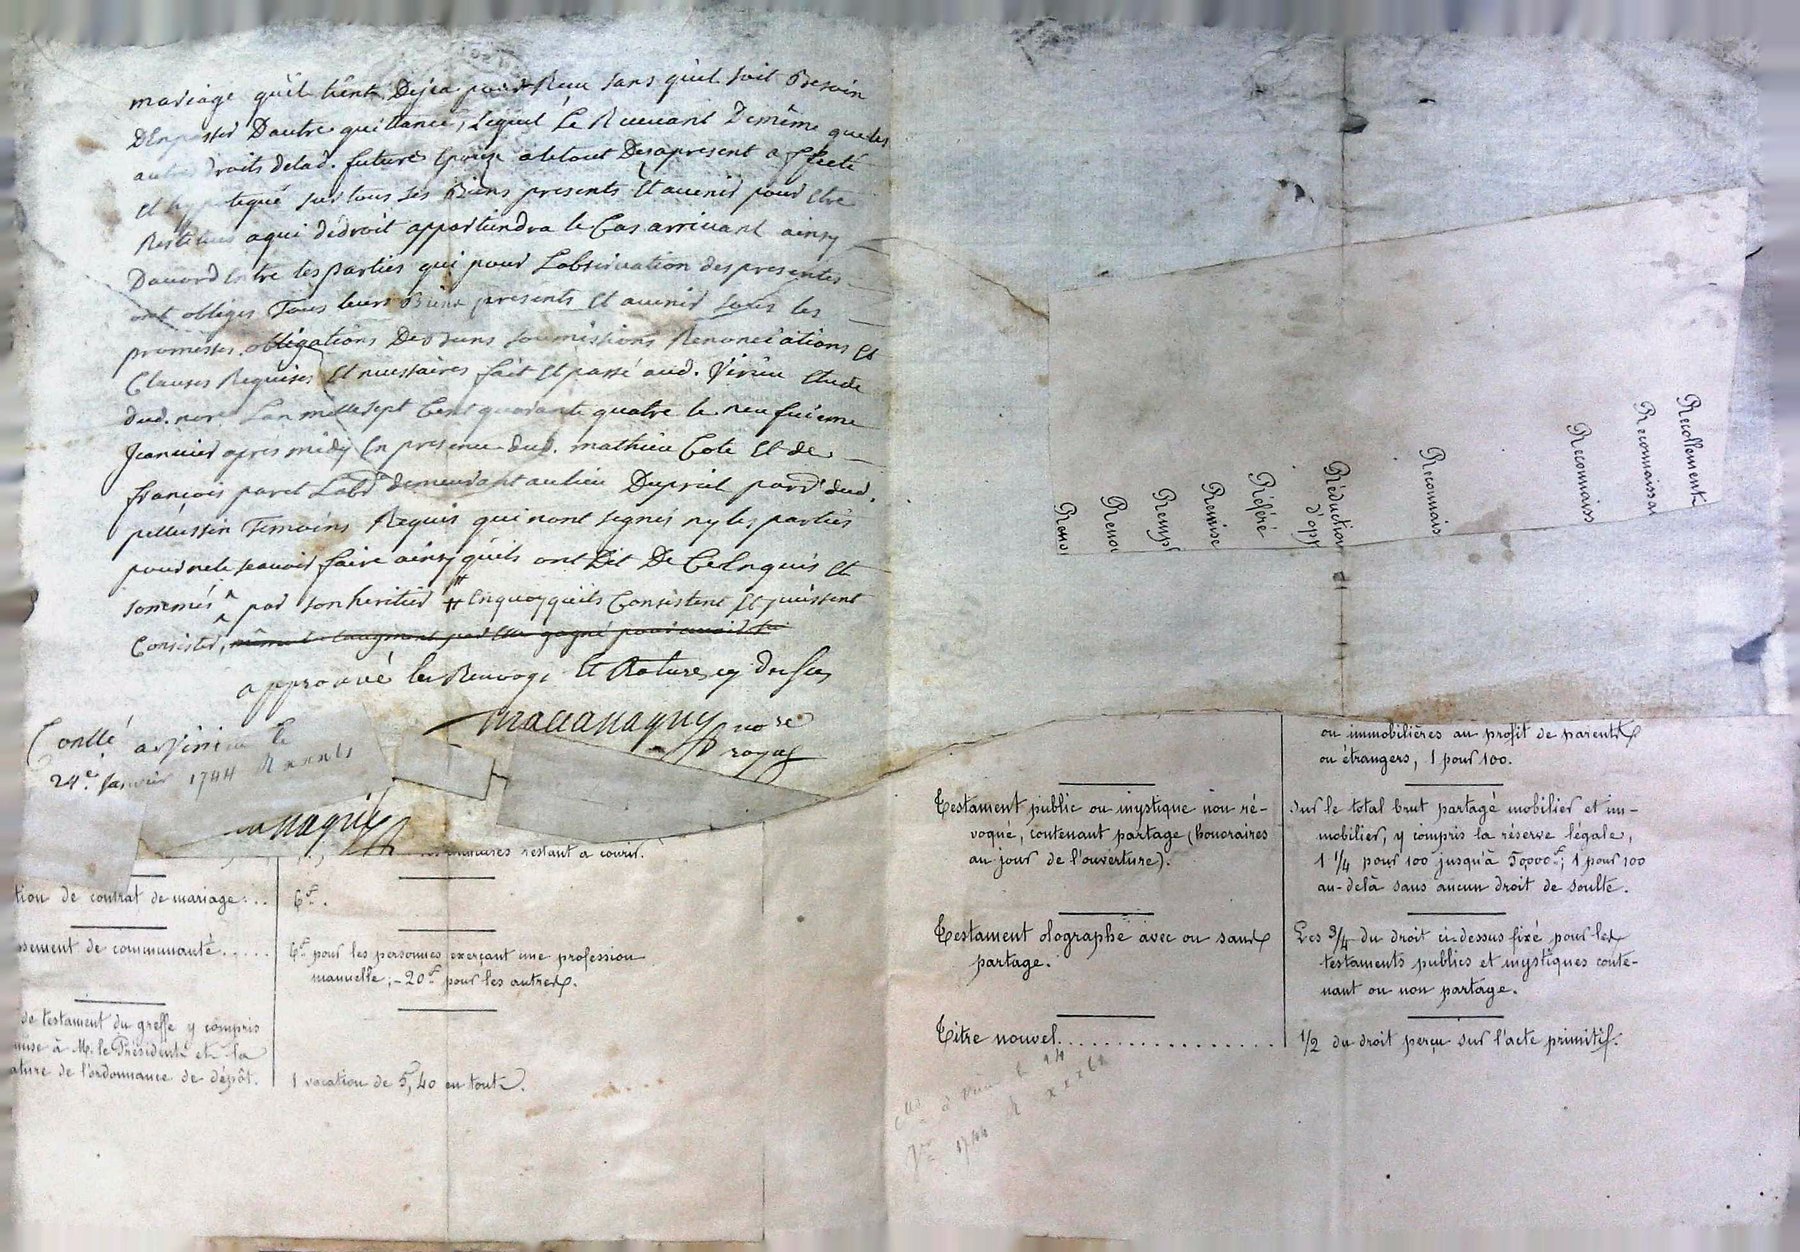 mariage quil tient Deja pour Reçu sans quil soit Besoin
D'En passer Dautre quittance, Lequel Le Recevant De même que les
autres droits de lad. future Epouse a le tout Desapresent affecté
Et hypotequé sur tous ses Biens presents Et avenir pour Etre
Restitués a qui de droit appartiendra le Cas arrivant ainsy
Daccord Entre les parties qui pour Lobservation des presentes
ont obligés Tous leurs Biens presents Et avenir sous les
promesses obligations soumissions Renonciations Et
Clauses Requises Et necessaires fait Et passé aud. Virieu Etude
dud. nore Lan mille sept Cent quarante quatre le neufuieme
Jeanvier apres midy En presence dud. mathieu Cote Et de
françois paret Labr demeurant au lieu Dupreil parr dud.
pellussin Temoins Requis qui nont signés ny les parties
pour ne le scavoir faire ainsy quils ont Dit De Ce Enquis Et
sommés par son heritier # En quoy quils Consistent Et puissent
Consister,
approuvé les Renvoys Et Rature cy dessus
nore
royal
Conllé a Virieu le
24e Janvier 1744
restant a courir.
tion de contrat de mariage...
6f.
ssement de communauté.....
6f pour les personnes exerçant une profession
manuelle; - 20f pour les autres.
de testament du greffe y compris
mise à M. le Président et la
ature de l'ordonnance de dépôt.
1 vacation de 5f,40 en tout.
Renon
Remp
Remise
Référé
Réduction
d'opp
Reconnais
Reconnaiss
Reconnaissa
Recollement
ou immobilières au profit de parents
ou étrangers, 1 pour 100.
Testament public ou mystique non ré-
voqué, contenant partage (honoraires
au jour de l'ouverture).
Sur le total brut partagé mobilier et im-
mobilier, y compris la réserve légale,
1 1/4 pour 100 jusqu'à 50,000f; 1 pour 100
au-delà sans aucun droit de soulte.
Testament olographe avec ou sans
partage.
Les 3/4 du droit ci-dessus fixé pour les
testaments publics et mystiques conte-
nant ou non partage.
Titre nouvel..................
1/2 du droit perçu sur l'acte primitif.
1744